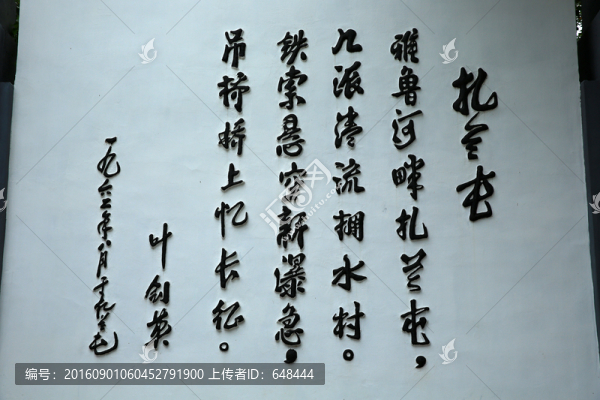 扎兰屯
雅鲁河畔扎兰屯，
几派清流拥水村。
铁索悬空瀑急，
吊桥桥上忆长征。
叶剑英
一九六二年八月于扎兰屯
编号：20160901060452791900 上传者ID：648444